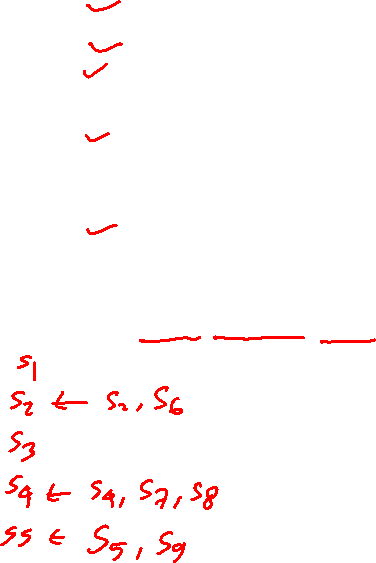 S1
S2 ← S2, S6
S3
S4 ← S4, S7, S8
S5 ← S5, S9